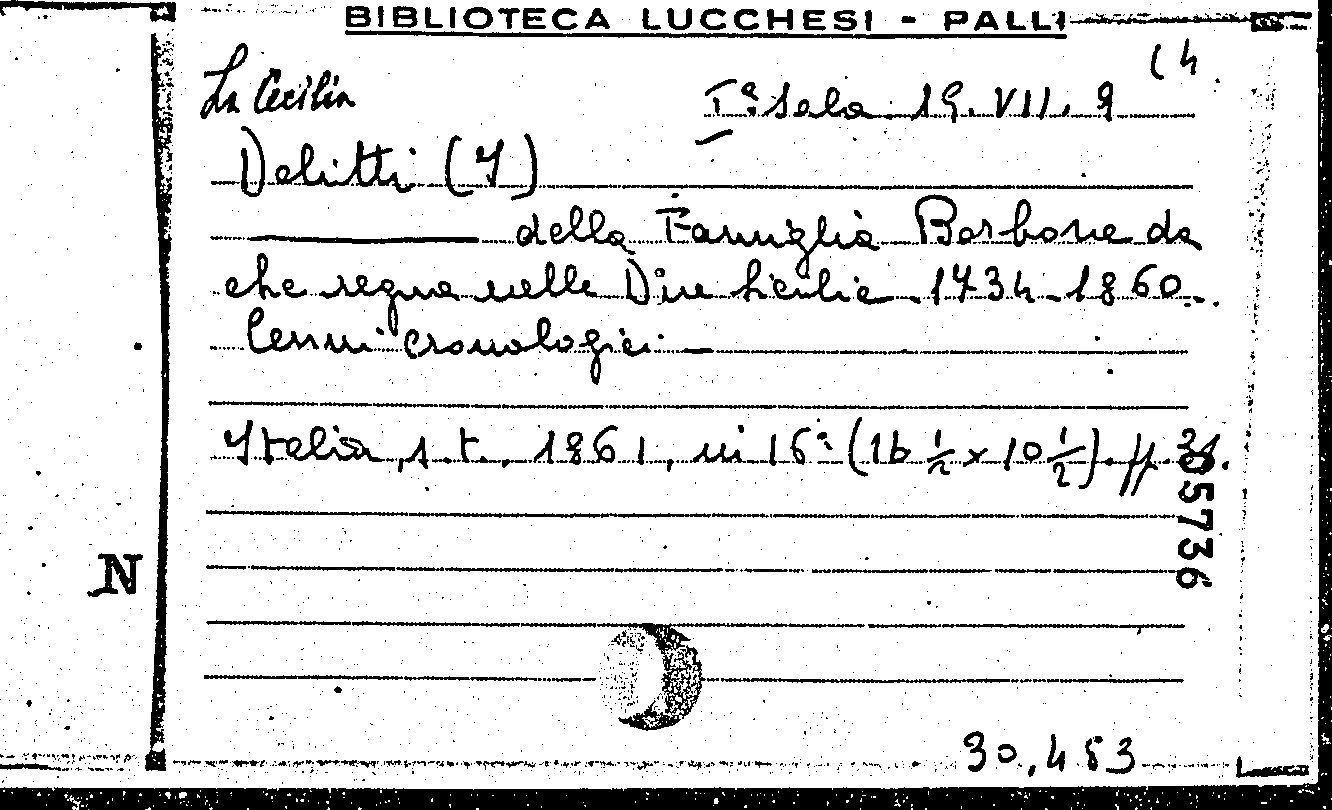 BIBLIOTECA LUCCHESI - PALLI
(4
La Cecilia
Iª Sala. 19. VII. 9
Delitti (I)
——— della Famiglia Borbone da
che regna nelle Due Sicilie. 1734-1860.
Cenni cronologici. —
Italia, s. t., 1861, in 16° (16 ½ x 10 ½). pp.
05736
N
30,483